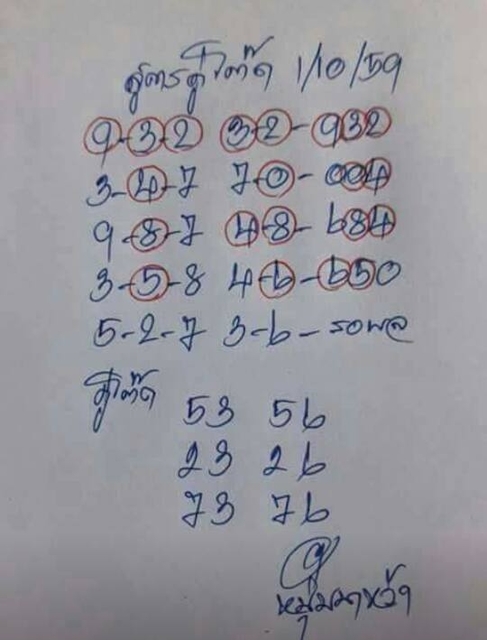 สูตรคู่โต๊ด 1/10/59
9-3-2 3-2-932
3-4-7 7-0-004
9-8-7 4-8-684
3-5-8 4-6-650
5-2-7 3-6-รอผล
คู่โต๊ด
53 56
23 26
73 76